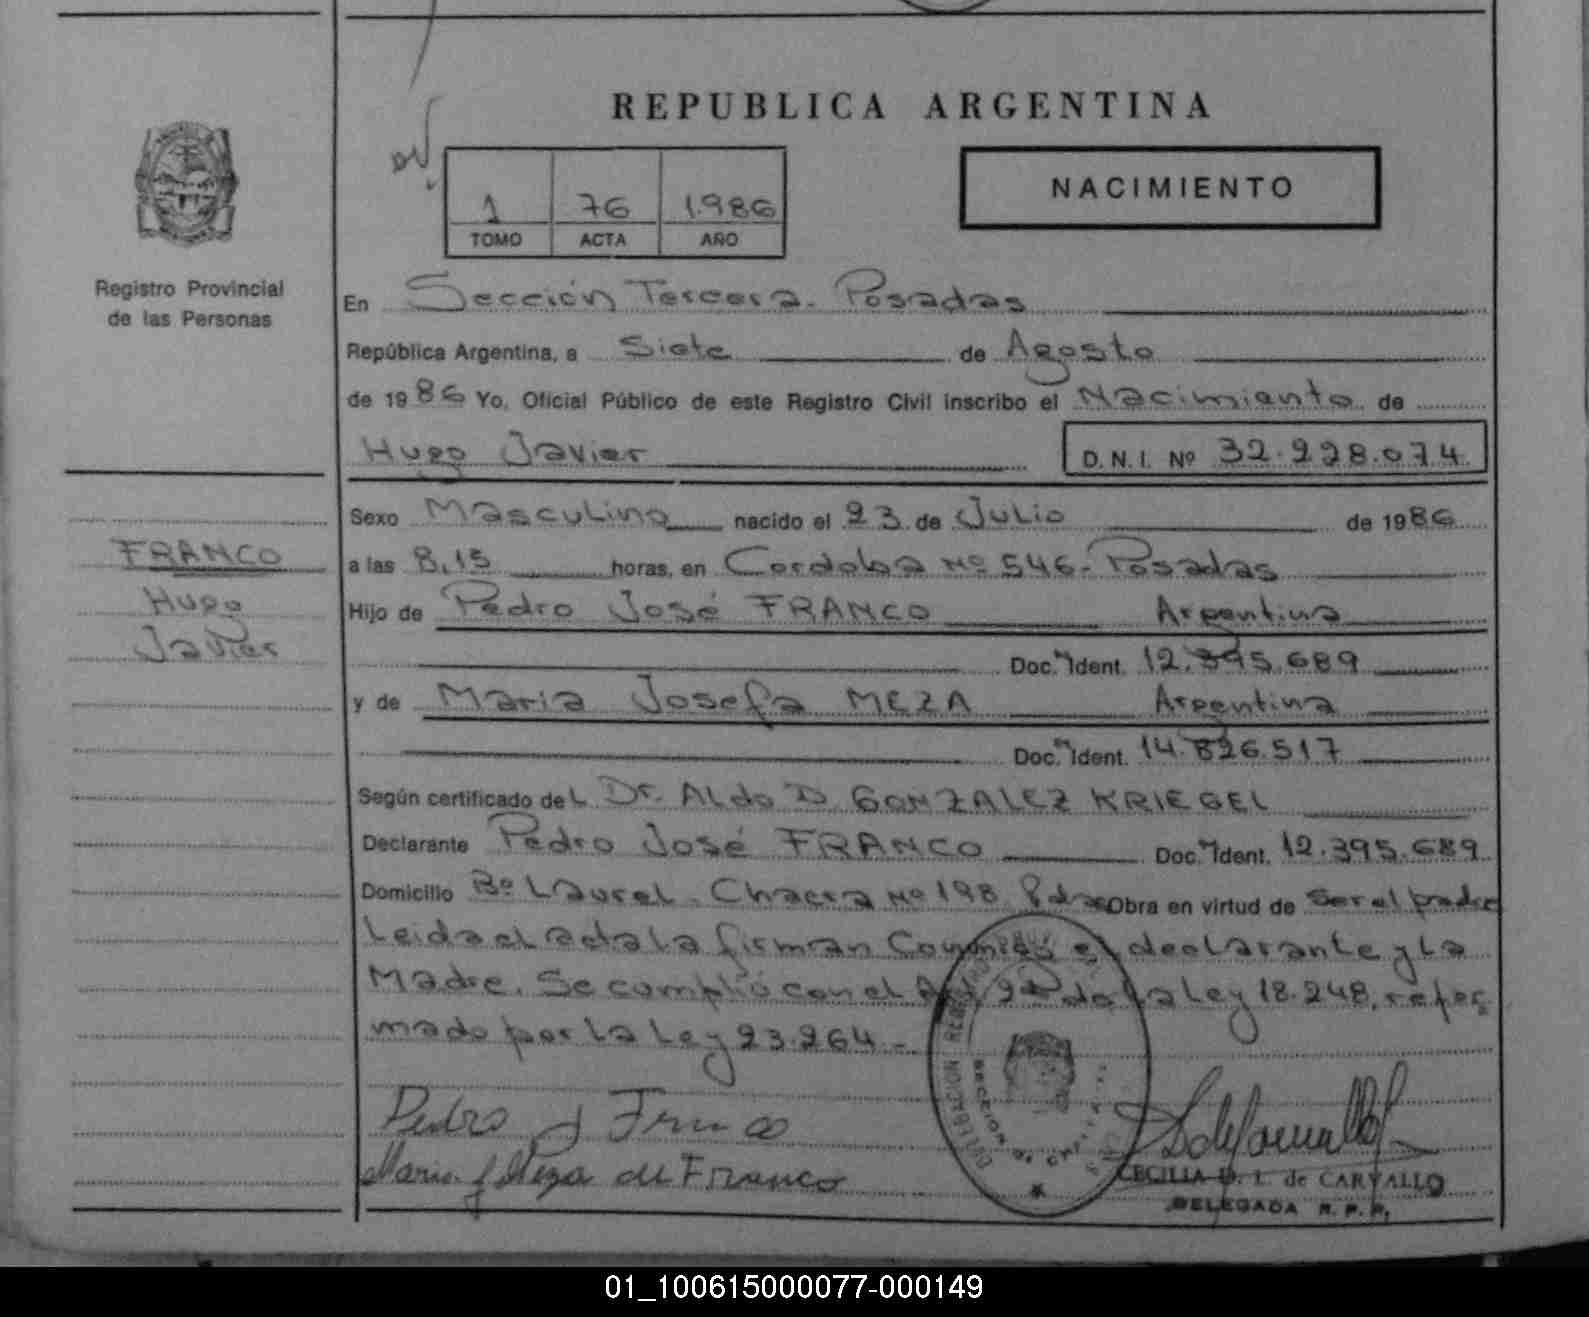 REPUBLICA ARGENTINA
1 76 1.986
TOMO ACTA AÑO
NACIMIENTO
Registro Provincial
de las Personas
En Sección Tercera. Posadas
República Argentina, a Siete de Agosto
de 1986 Yo, Oficial Público de este Registro Civil inscribo el Nacimiento de
Hugo Javier D.N.I. Nº 32.228.074
Sexo Masculino nacido el 23 de Julio de 1986
a las 8,15 horas, en Cordoba Nº 546-Posadas
Hijo de Pedro José FRANCO Argentina
Doc. Ident. 12.395.689
y de Maria Josefa MEZA Argentina
Doc. Ident. 14.826.517
Según certificado del Dr. Aldo D GONZALEZ KRIEGEL
Declarante Pedro José FRANCO Doc. Ident. 12.395.689
Domicilio Bº Laurel. Chacra Nº 198 Pdas Obra en virtud de Ser el padre
Leida el acta la firman Conmigo el declarante y La
Madre. Se cumplió con el Art 2º de La Ley 18.248, refor
mado por la Ley 23.264-
FRANCO
Hugo
Javier
Pedro J Franco
Maria J Meza de Franco
DELEGACION
SECCION
CECILIA D. L. de CARVALLO
DELEGADA R. P. P.
01_100615000077-000149